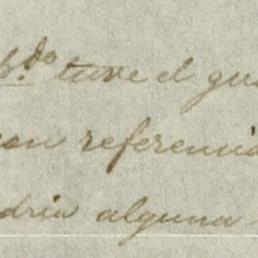 b.do tuve el gu
con referencia
dria alguna